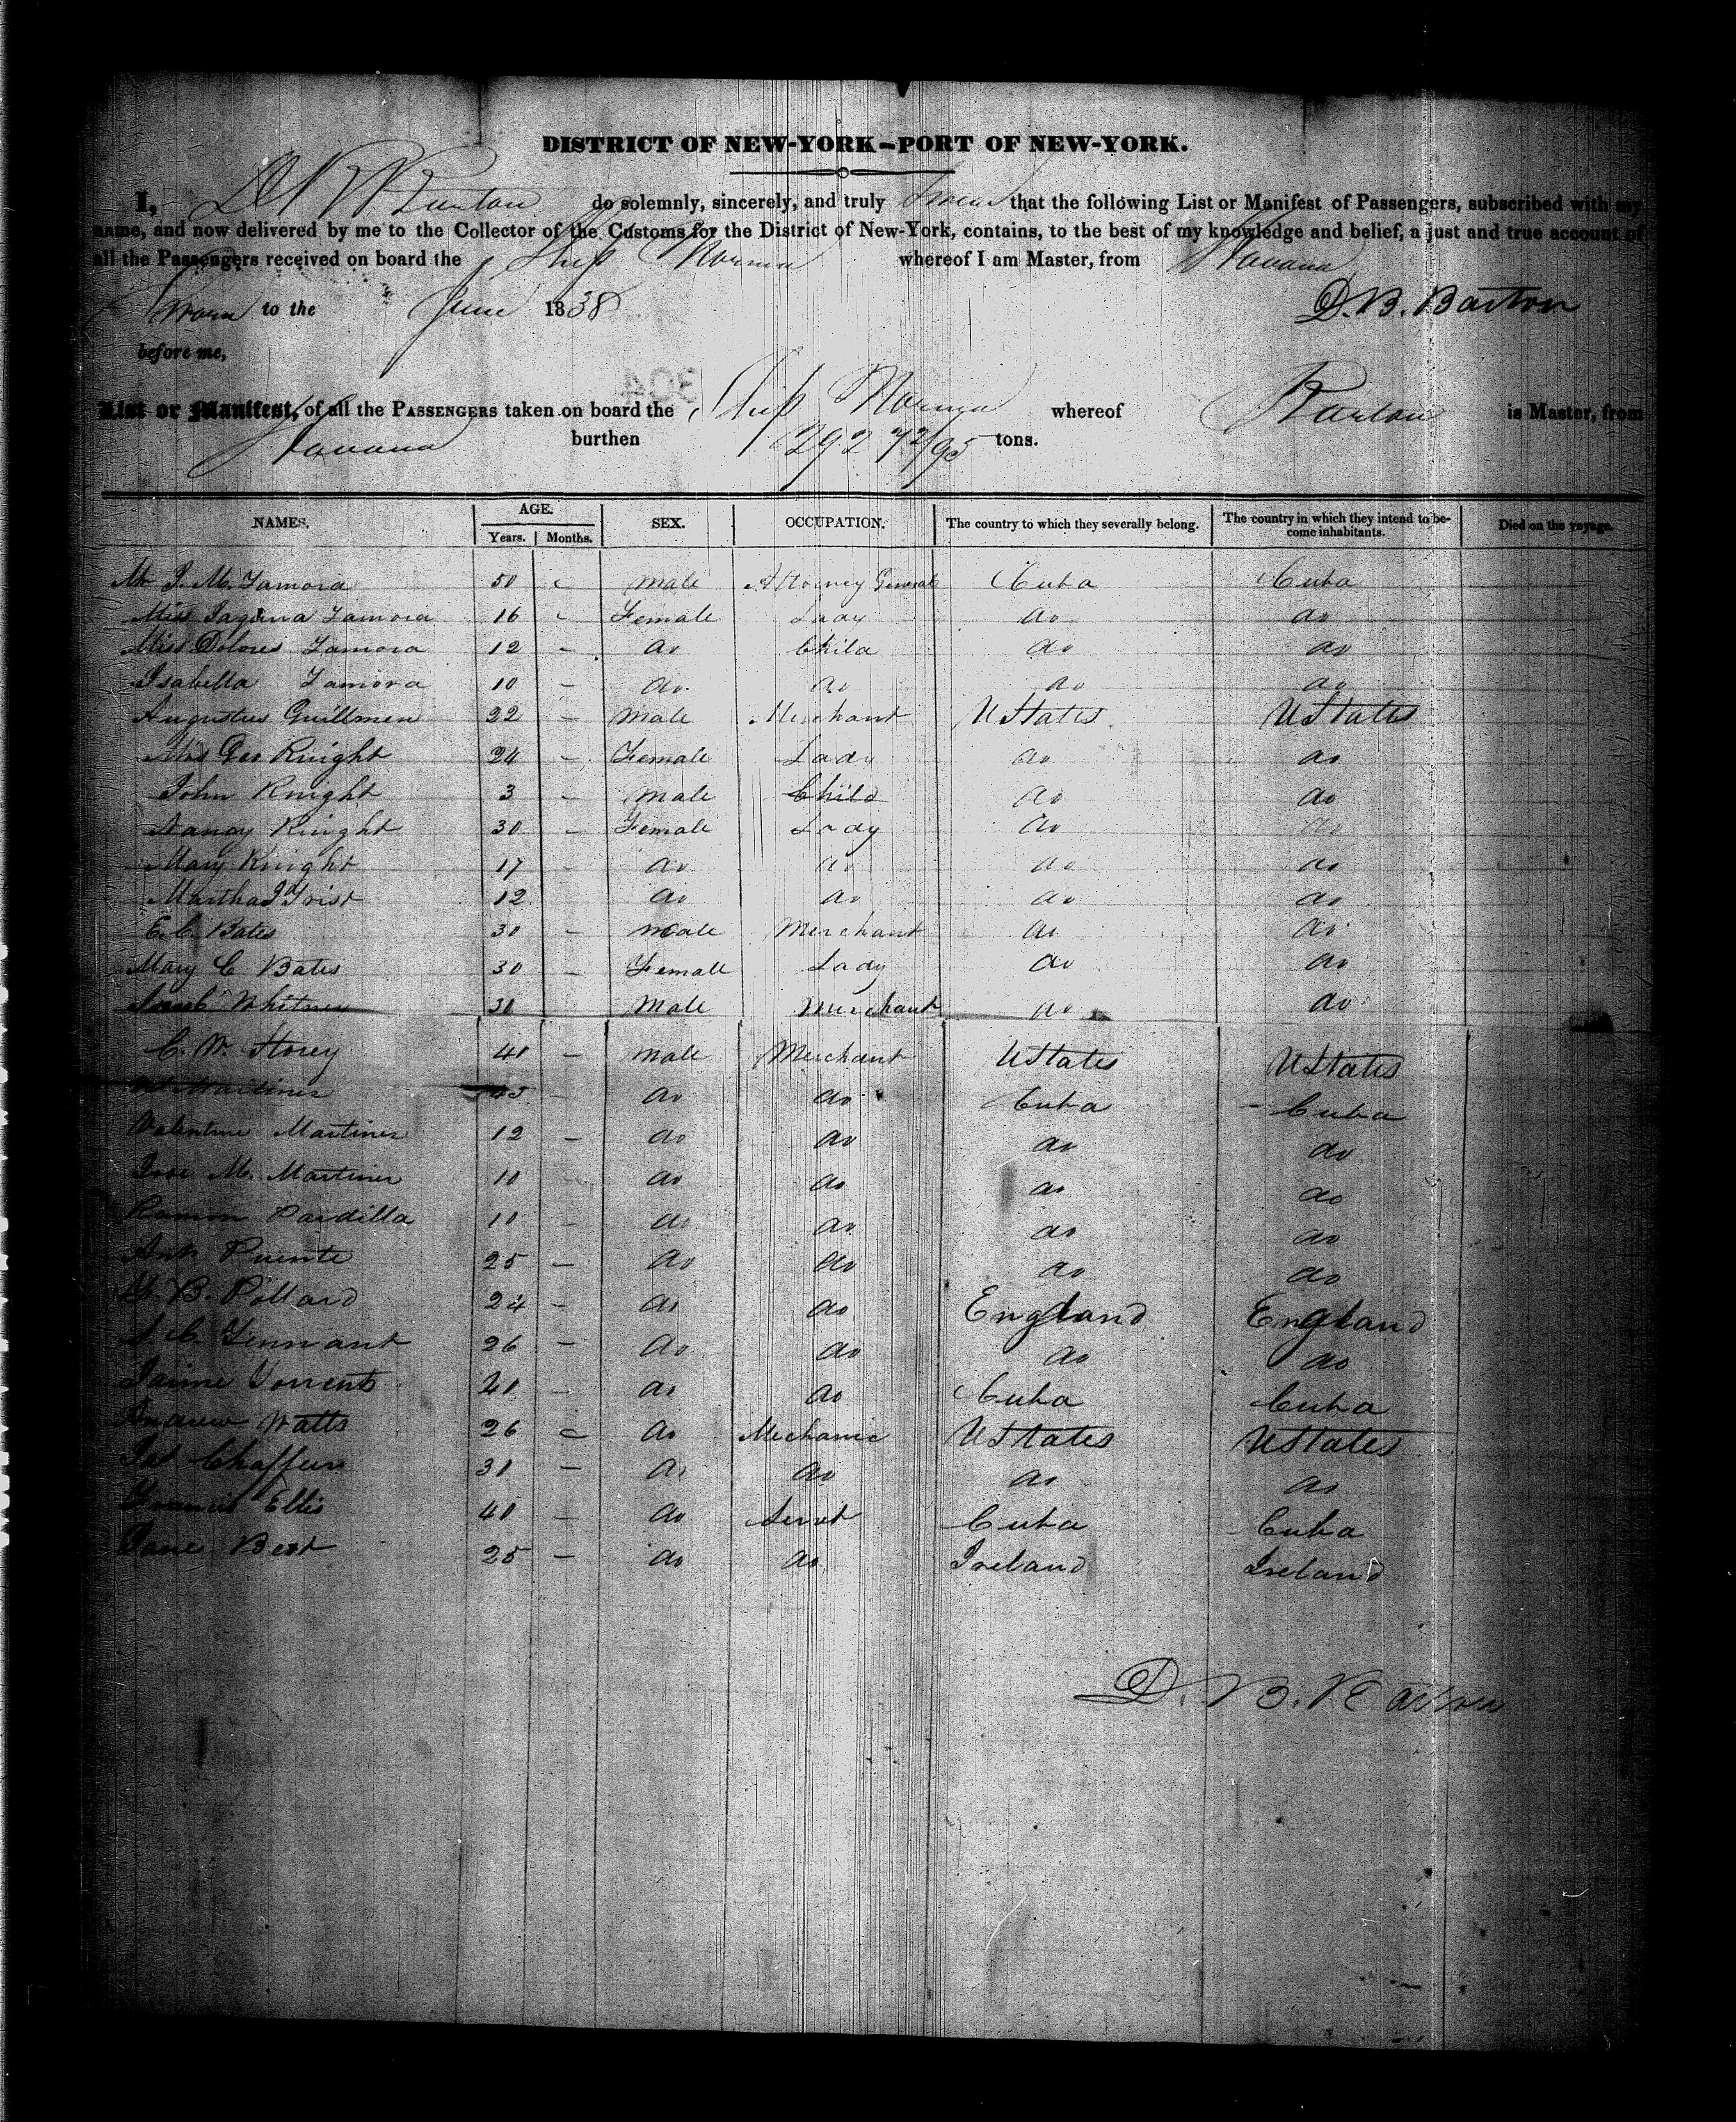 DISTRICT OF NEW-YORK—PORT OF NEW-YORK.
I, D B Barton do solemnly, sincerely, and truly swear that the following List or Manifest of Passengers, subscribed with my
name, and now delivered by me to the Collector of the Customs for the District of New-York, contains, to the best of my knowledge and belief, a just and true account of
all the Passengers received on board the Ship Norma whereof I am Master, from Havana
Sworn to the June 1838 D. B. Barton
before me,
304
List or Manifest, of all the PASSENGERS taken on board the Ship Norma whereof Barton is Master, from
Havana burthen 292 72/95 tons.
NAMES. AGE. Years. Months. SEX. OCCUPATION. The country to which they severally belong. The country in which they intend to become inhabitants. Died on the voyage.
Mr J. M. Zamora 50 - male Attorney General Cuba Cuba
Miss Zamora 16 - Female Lady do do
Miss Dolores Zamora 12 - do Child do do
Isabella Zamora 10 - do do do do
Augustus Guillmen 22 - male Merchant UStates UStates
Mrs Geo Knight 24 - Female Lady do do
John Knight 3 - male Child do do
Nancy Knight 30 - Female Lady do do
Mary Knight 17 - do do do do
Martha J Trist 12 do do do do
E. C. Bates 30 - male Merchant do do
Mary C Bates 30 - Female Lady do do
Whitney 30 male Merchant do do
C. W. Storey 40 - male Merchant UStates UStates
Martiner 45 - do do Cuba Cuba
Valentine Martiner 12 - do do do do
Jose M. Martiner 10 do do do do
Ramon Pardilla 10 - do do do do
Ant Puente 25 - do do do do
B. Pollard 24 - do do England England
C Tennant 26 - do do do do
Jaime Torrents 20 - do do Cuba Cuba
Andrew Watts 26 - do Mechanic UStates UStates
Chaffen 30 - do do do do
Francis Ellis 40 - do Servt Cuba Cuba
Jane Bert 25 - do do Ireland Ireland
D. B. Barton